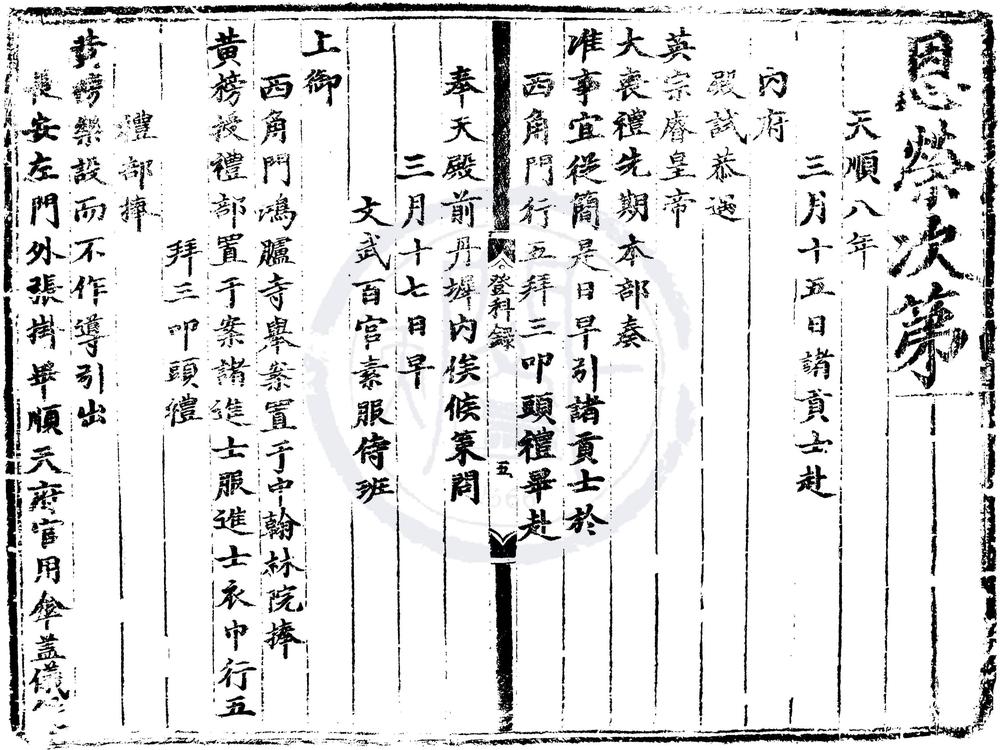 恩榮次第
天順八年
三月十五日諸貢士赴
內府
殿試恭遇
英宗睿皇帝
大喪禮先期本部奏
准事宜從簡是日早引諸貢士於
西角門行五拜三叩頭禮畢赴
奉天殿前丹墀內俟候策問
登科錄
五
三月十七日早
文武百官素服侍班
上御
西角門鴻臚寺舉案置于中翰林院捧
黃榜授禮部置于案諸進士服進士衣巾行五
拜三叩頭禮
禮部捧
黃榜樂設而不作導引出
長安左門外張掛畢順天府官用傘蓋儀